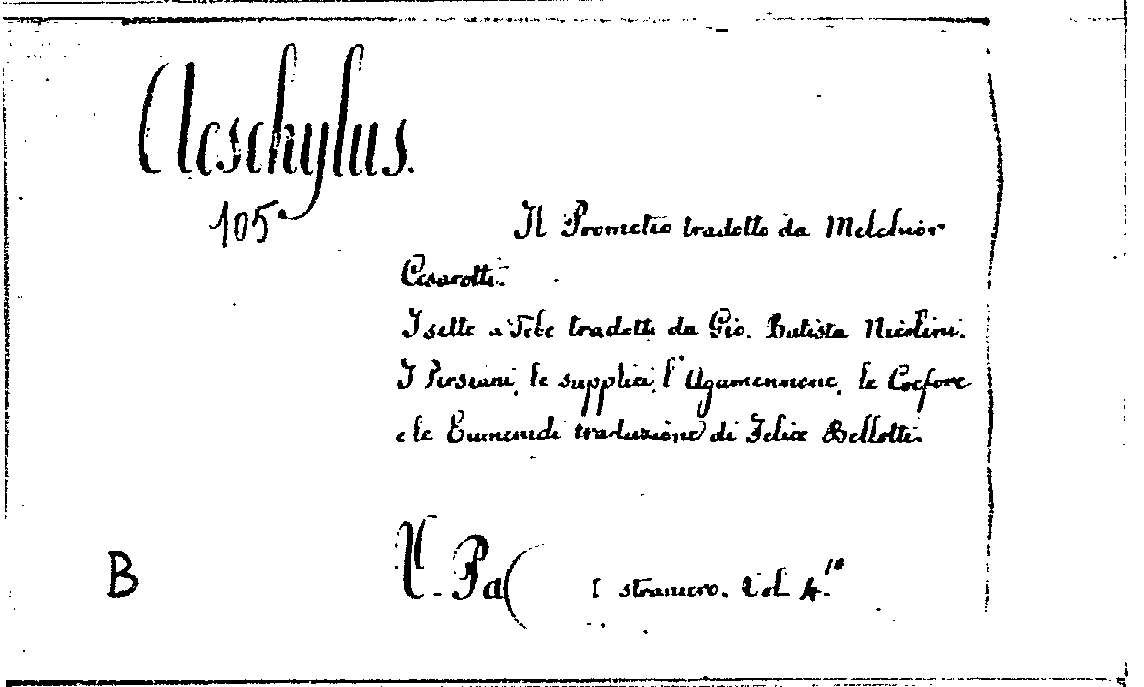 Aeschylus.
105
Il Prometeo tradotto da Melchior
Cesarotti.
I sette a Tebe tradotti da Gio. Batista Nicolini.
I Persiani, le supplici, l'Agamennone, le Coefore
e le Eumenidi traduzione di Felice Bellotti.
B
V. Pa( straniero. Vol 4.